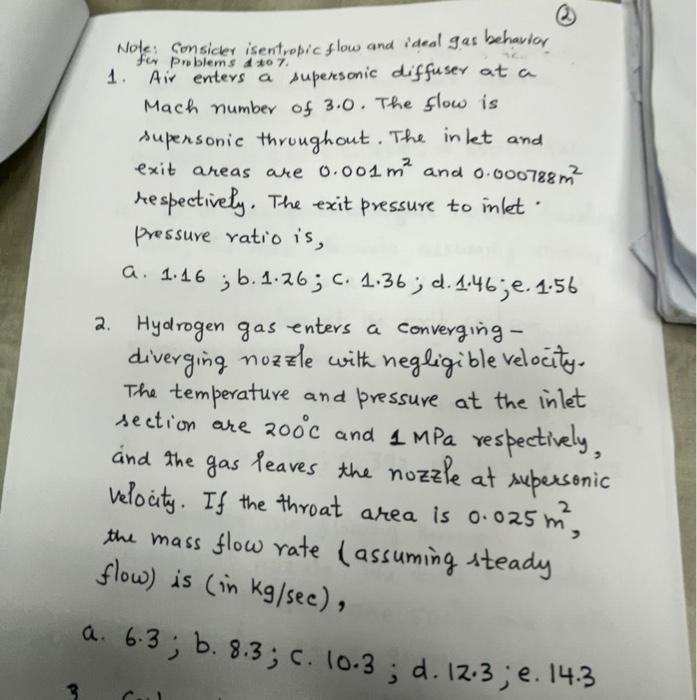 ②
Note: Consider isentropic flow and ideal gas behavior
for Problems 1 to 7.
1. Air enters a supersonic diffuser at a
Mach number of 3.0. The flow is
supersonic throughout. The inlet and
exit areas are 0.001 m² and 0.000788 m²
respectively. The exit pressure to inlet
pressure ratio is,
a. 1.16 ; b. 1.26 ; c. 1.36 ; d. 1.46 ; e. 1.56
2. Hydrogen gas enters a converging –
diverging nozzle with negligible velocity.
The temperature and pressure at the inlet
section are 200°C and 1 MPa respectively,
and the gas leaves the nozzle at supersonic
velocity. If the throat area is 0.025 m²,
the mass flow rate (assuming steady
flow) is (in kg/sec),
a. 6.3 ; b. 8.3 ; c. 10.3 ; d. 12.3 ; e. 14.3
3